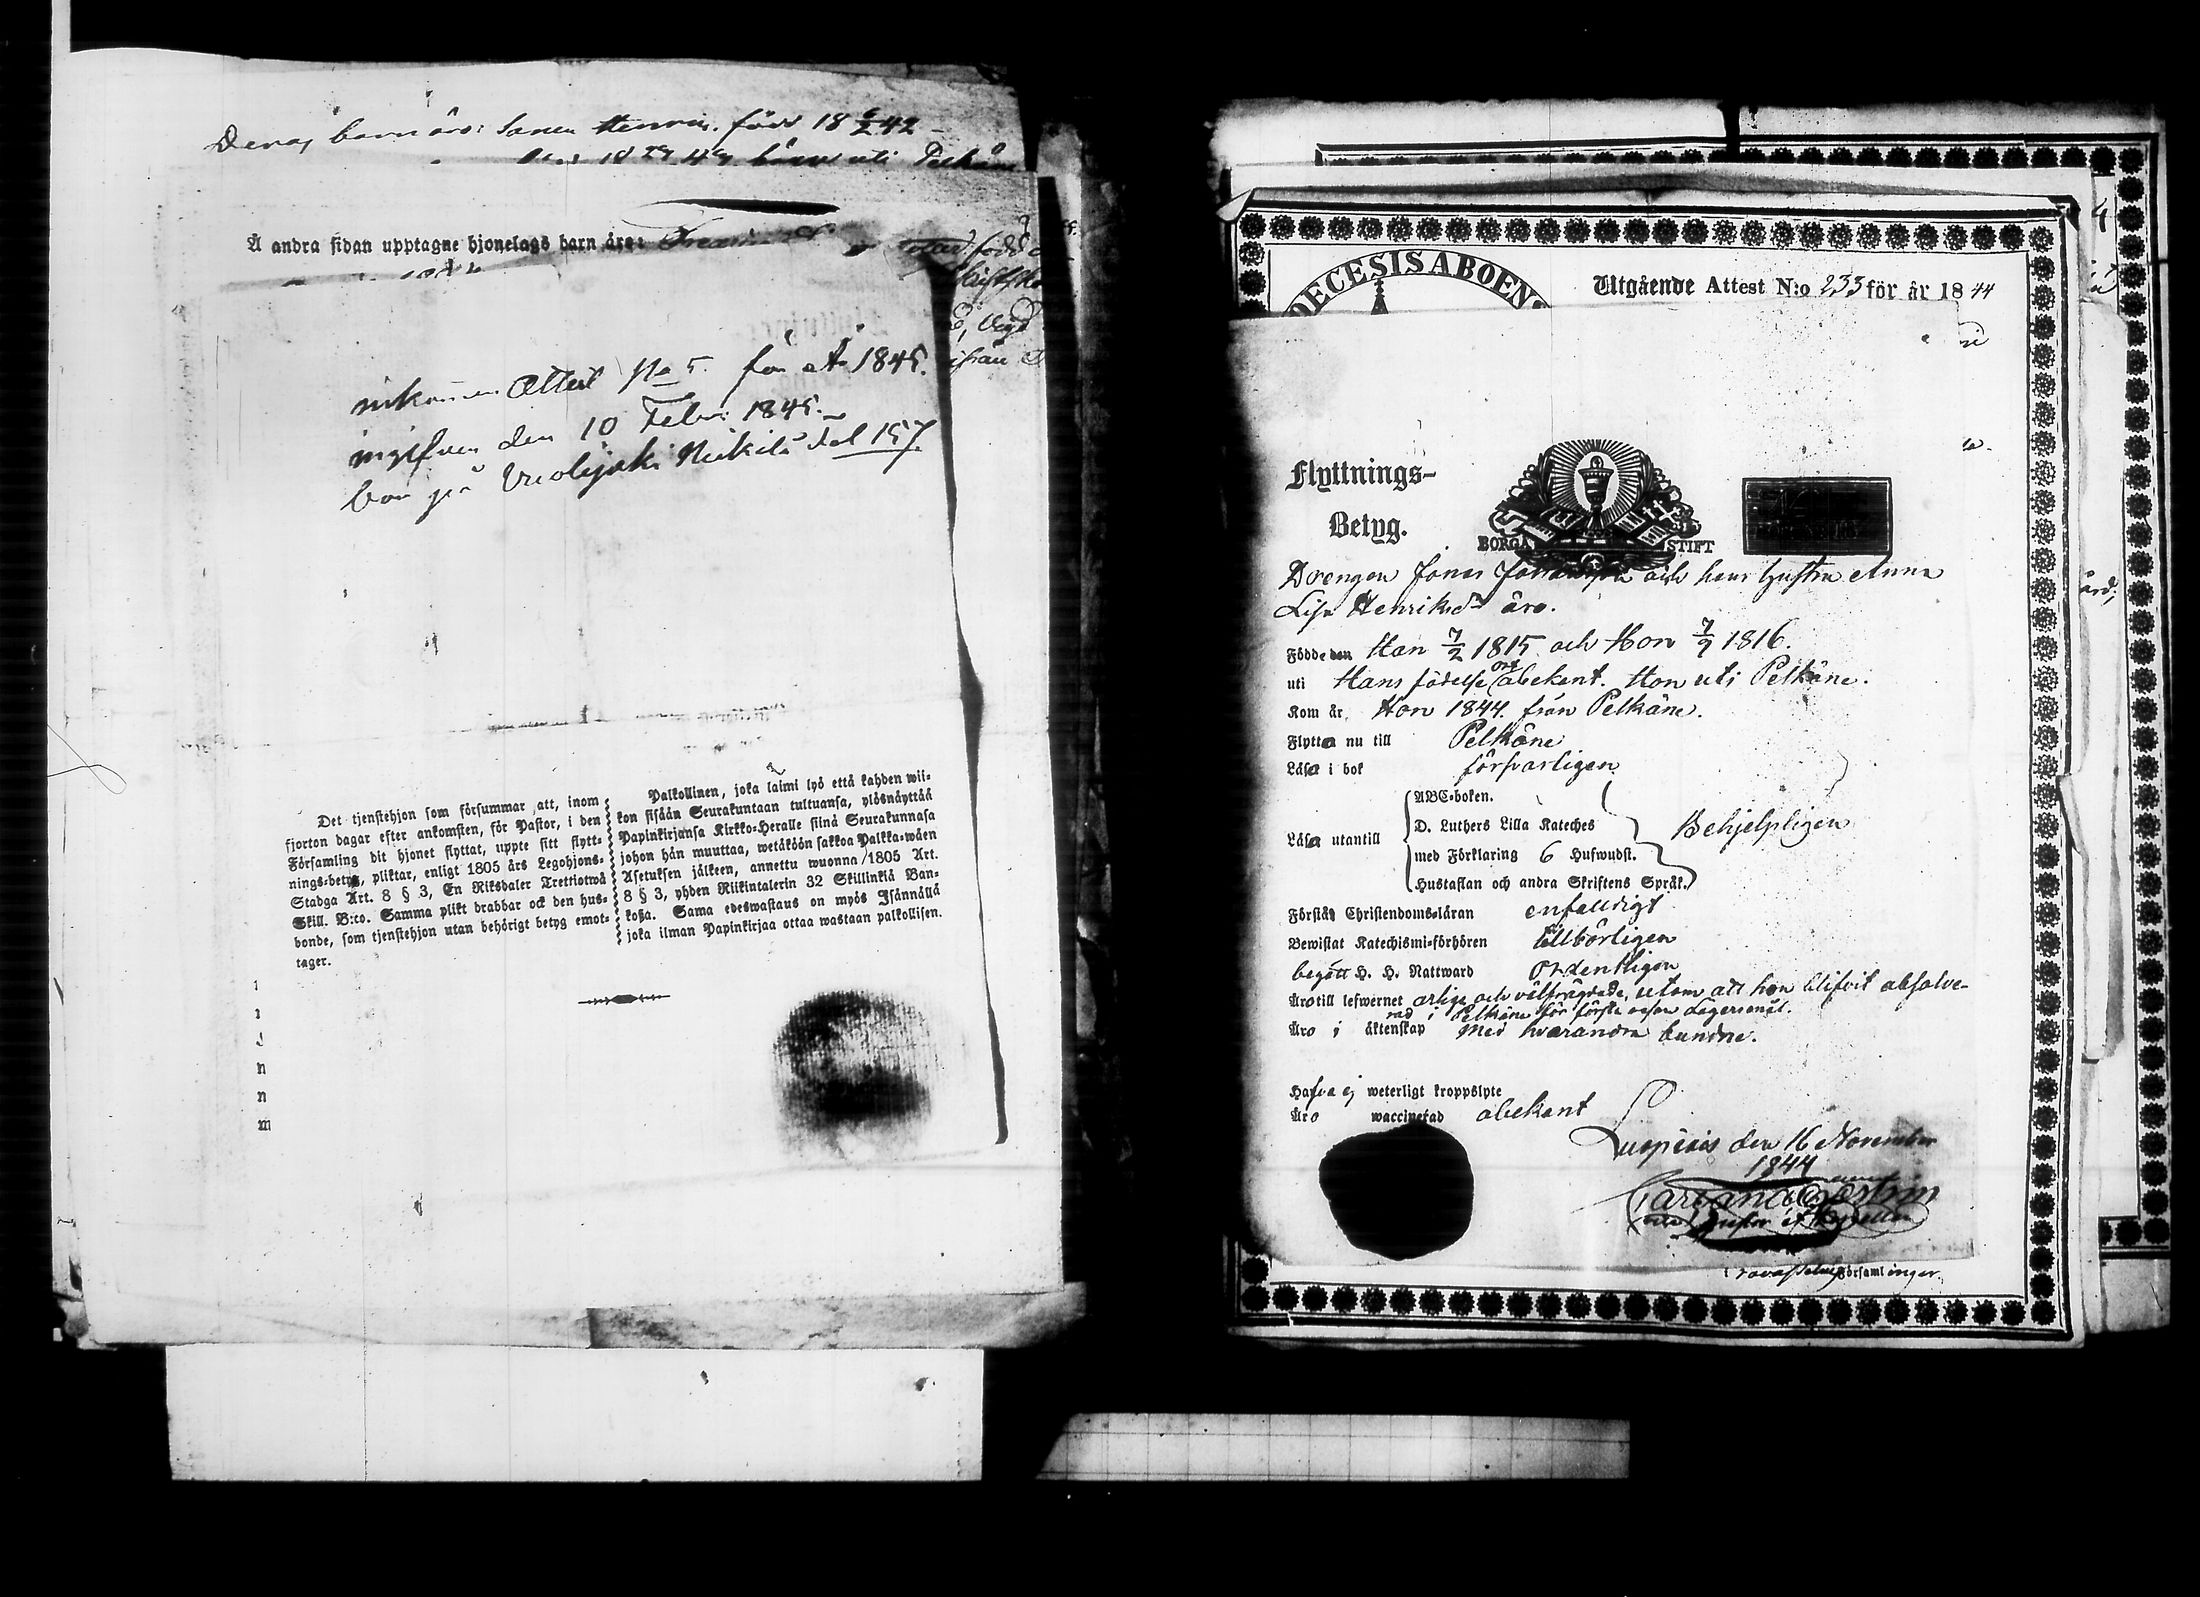 Deras barn äro: Sonen Henric. född 18 6/2 42
uti Pelkäne
Å andra sidan upptagne hjonelags barn äro:
född
inkommen Attest No 5. för År 1845.
ingifven den 10 Febr: 1845.
bor på Vuolijoki Nikilä Fol 157.
Det tjenstehjon som försummar att, inom
fjorton dagar efter ankomsten, för Pastor, i den
Församling dit hjonet flyttat, uppte sitt flytt-
nings-betyg, pliktar, enligt 1805 års Legohjons-
Stadga Art. 8 § 3, En Riksdaler Trettiotwå
Skill. B:co. Samma plikt drabbar ock den hus-
bonde, som tjenstehjon utan behörigt betyg emot-
tager.
Palkollinen, joka laimi lyö että kahden wii-
kon sisään Seurakuntaan tultuansa, ylösnäyttää
Papinkirjansa Kirkko-Heralle siinä Seurakunnasa
johon hän muuttaa, wetäköön sakkoa Palkka-wäen
Asetuksen jälkeen, annettu wuonna 1805 Art.
8 § 3, yhden Riikintalerin 32 Skillinkiä Ban-
koßa. Sama edeswastaus on myös Isännällä
joka ilman Papinkirjaa ottaa wastaan palkollisen.
DECESIS ABOENS
Utgående Attest N:o 233 för år 1844
Flyttnings-
Betyg.
BORGÅ STIFT
Drengen Jonas Johansson och hans hustru Anna
Lisa Henriksdr äro.
Födde den Han 7/2 1815 och Hon 7/9 1816.
uti Hans födelse ort obekant. Hon uti Pelkäne.
Kom år Hon 1844. från Pelkäne.
Flytta nu till Pelkäne
Läsa i bok försvarligen
ABC-boken.
D. Luthers Lilla Kateches
Läsa utantill Behjelpligen
med Förklaring 6 Hufwudst.
Hustaflan och andra Skriftens Språk.
Förstå Christendoms-läran enfaldigt
Bewistat Katechismi-förhören tillbörligen
begått H. H. Nattward Ordentligen
Äro till lefwernet ärlige och välfrägdade, utom att hon blifvit absolve-
rad i Pelkäne för första resan Lägersmål.
Äro i äktenskap med hvarandra bundne.
Hafva ej weterligt kroppslyte
Äro waccinerad obekant
Luopiois den 16 November
1844
Församlingar